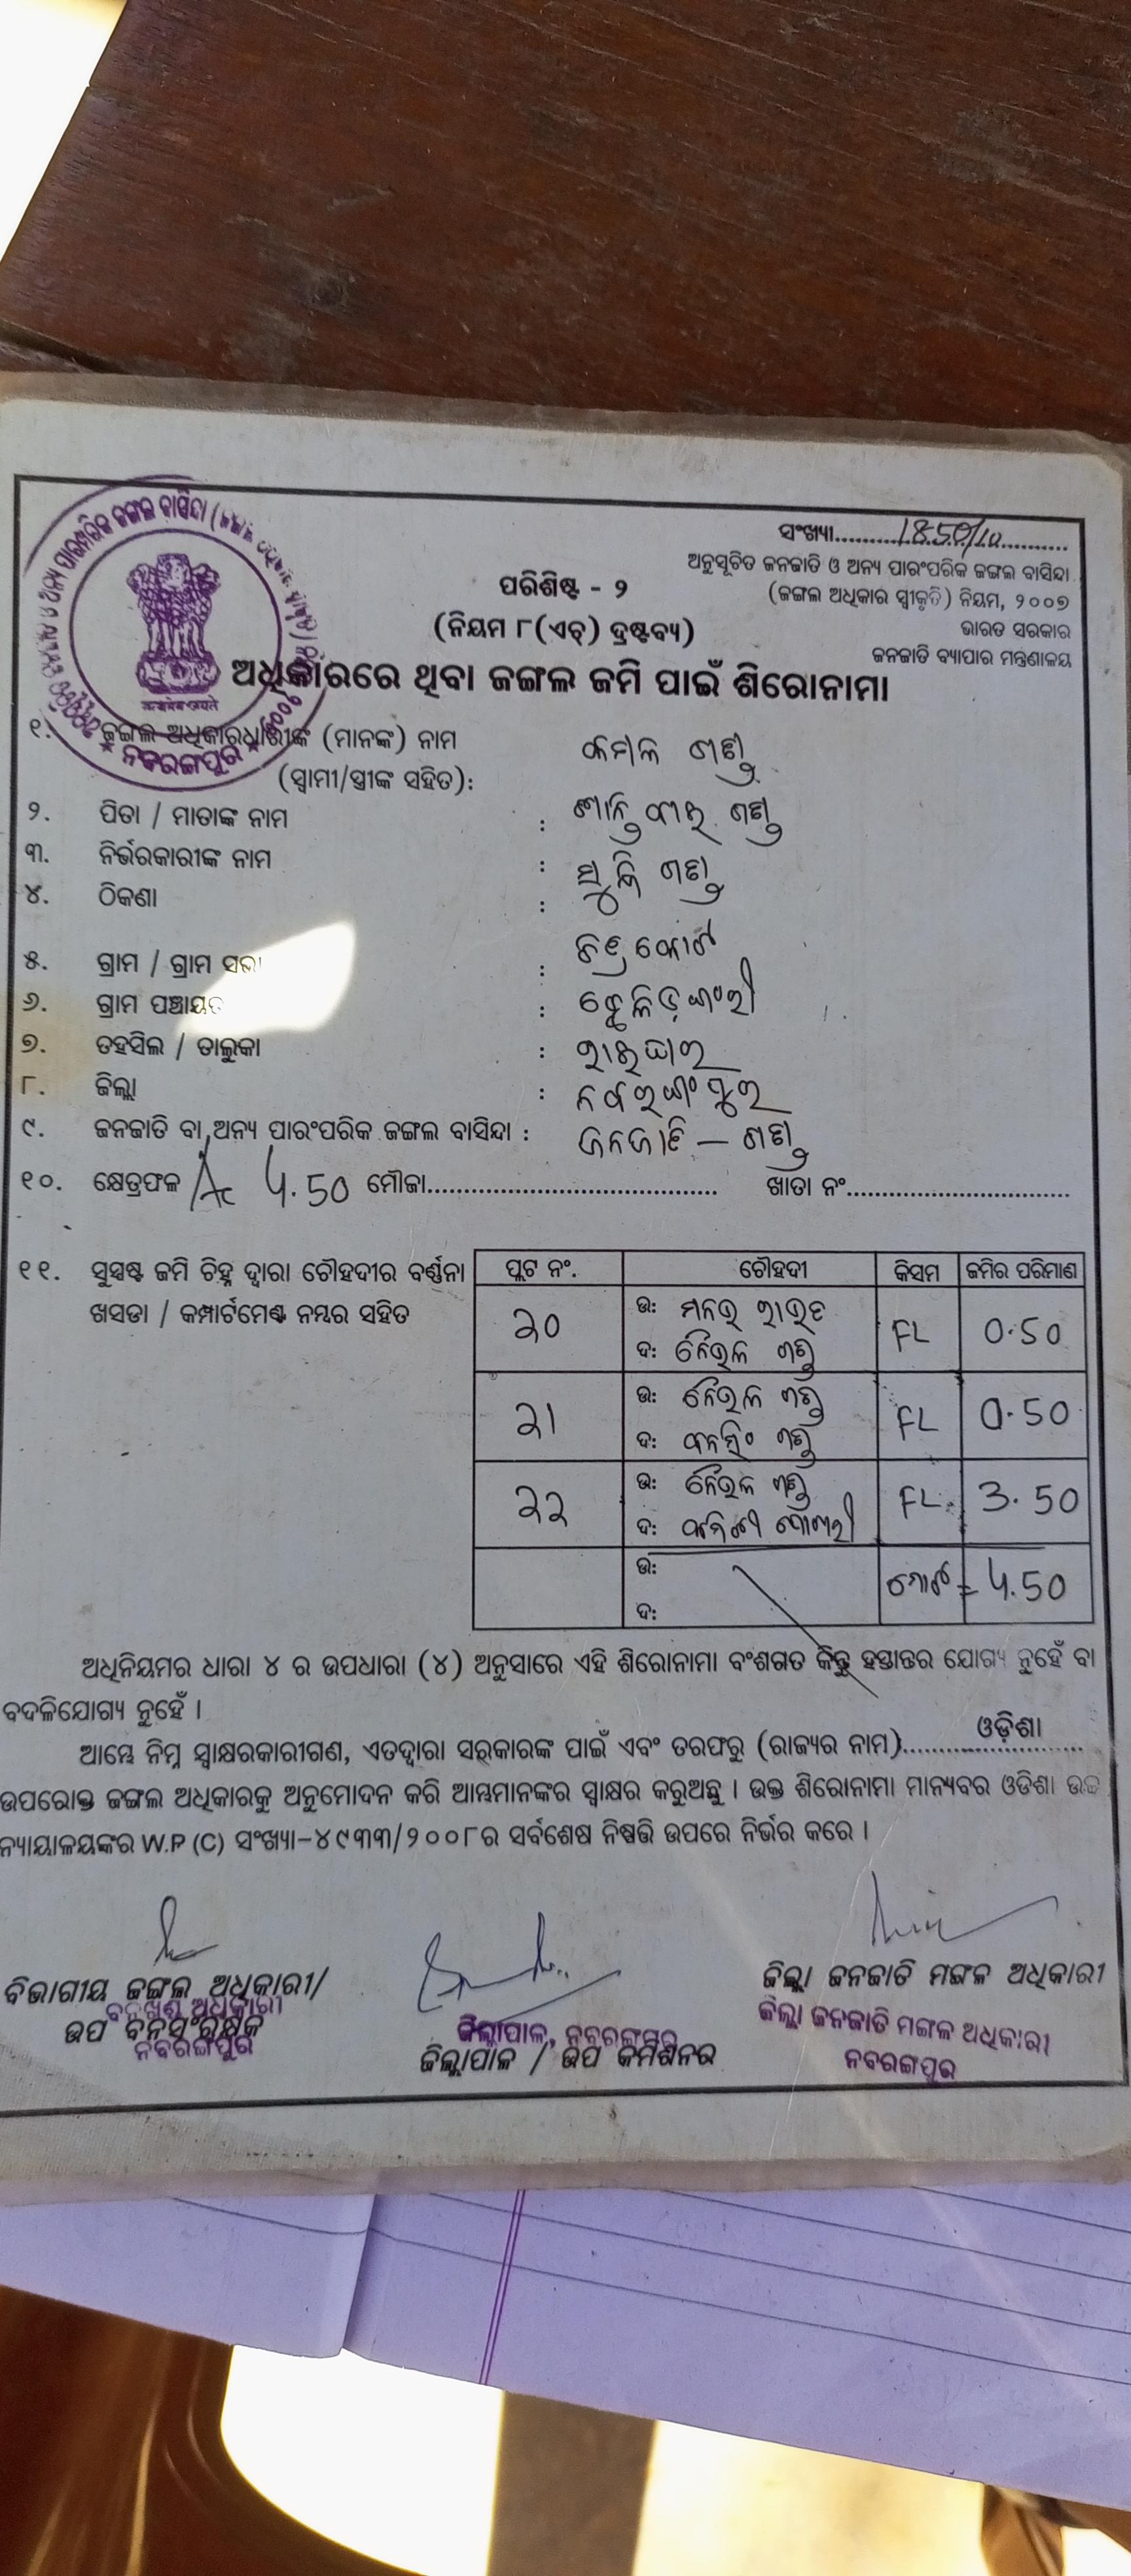 ସଂଖ୍ୟା..........1850/10..........
ଅନୁସୂଚିତ ଜନଜାତି ଓ ଅନ୍ୟ ପାରଂପରିକ ଜଙ୍ଗଲ ବାସିନ୍ଦା
(ଜଙ୍ଗଲ ଅଧିକାର ସ୍ୱୀକୃତି) ନିୟମ, ୨୦୦୭
ଭାରତ ସରକାର
ଜନଜାତି ବ୍ୟାପାର ମନ୍ତ୍ରଣାଳୟ
ପରିଶିଷ୍ଟ - ୨
(ନିୟମ ୮(ଏଚ୍) ଦ୍ରଷ୍ଟବ୍ୟ)
ଅଧିକାରରେ ଥିବା ଜଙ୍ଗଲ ଜମି ପାଇଁ ଶିରୋନାମା
ନବରଙ୍ଗପୁର
୧. ଜଙ୍ଗଲ ଅଧିକାରଧାରୀଙ୍କ (ମାନଙ୍କ) ନାମ କମଳ ଗଣ୍ଡ
(ସ୍ୱାମୀ/ସ୍ତ୍ରୀଙ୍କ ସହିତ):
୨. ପିତା / ମାତାଙ୍କ ନାମ : ଗଣ୍ଡ
୩. ନିର୍ଭରକାରୀଙ୍କ ନାମ : ଗଣ୍ଡ
୪. ଠିକଣା :
୫. ଗ୍ରାମ / ଗ୍ରାମ ସଭା :
୬. ଗ୍ରାମ ପଞ୍ଚାୟତ :
୭. ତହସିଲ / ତାଲୁକା : ରାଇଘର
୮. ଜିଲ୍ଲା : ନବରଙ୍ଗପୁର
୯. ଜନଜାତି ବା ଅନ୍ୟ ପାରଂପରିକ ଜଙ୍ଗଲ ବାସିନ୍ଦା : ଜନଜାତି — ଗଣ୍ଡ
୧୦. କ୍ଷେତ୍ରଫଳ Ac 4.50 ମୌଜା.................... ଖାତା ନଂ....................
୧୧. ସୁସ୍ପଷ୍ଟ ଜମି ଚିହ୍ନ ଦ୍ୱାରା ଚୌହଦୀର ବର୍ଣ୍ଣନା
ଖସଡା / କମ୍ପାର୍ଟମେଣ୍ଟ ନମ୍ବର ସହିତ
ପ୍ଲଟ ନଂ. ଚୌହଦୀ କିସମ ଜମିର ପରିମାଣ
20 ଉ: FL 0.50
ଦ: ଗଣ୍ଡ
21 ଉ: ଗଣ୍ଡ FL 0.50
ଦ: ଗଣ୍ଡ
22 ଉ: ଗଣ୍ଡ FL 3.50
ଦ:
ଉ: ମୋଟ = 4.50
ଦ:
ଅଧିନିୟମର ଧାରା ୪ ର ଉପଧାରା (୪) ଅନୁସାରେ ଏହି ଶିରୋନାମା ବଂଶଗତ କିନ୍ତୁ ହସ୍ତାନ୍ତର ଯୋଗ୍ୟ ନୁହେଁ ବା
ବଦଳିଯୋଗ୍ୟ ନୁହେଁ ।
ଆମ୍ଭେ ନିମ୍ନ ସ୍ୱାକ୍ଷରକାରୀଗଣ, ଏତଦ୍ୱାରା ସର୍‌କାରଙ୍କ ପାଇଁ ଏବଂ ତରଫରୁ (ରାଜ୍ୟର ନାମ)..........ଓଡ଼ିଶା..........
ଉପରୋକ୍ତ ଜଙ୍ଗଲ ଅଧିକାରକୁ ଅନୁମୋଦନ କରି ଆମ୍ଭମାନଙ୍କର ସ୍ୱାକ୍ଷର କରୁଅଛୁ । ଉକ୍ତ ଶିରୋନାମା ମାନ୍ୟବର ଓଡିଶା ଉଚ୍ଚ
ନ୍ୟାୟାଳୟଙ୍କର W.P (C) ସଂଖ୍ୟା-୪୯୩୩/୨୦୦୮ର ସର୍ବଶେଷ ନିଷ୍ପତ୍ତି ଉପରେ ନିର୍ଭର କରେ ।
ବିଭାଗୀୟ ଜଙ୍ଗଲ ଅଧିକାରୀ/
ବନଖଣ୍ଡ ଅଧିକାରୀ
ଉପ ବନସଂରକ୍ଷକ
ନବରଙ୍ଗପୁର
ଜିଲ୍ଲାପାଳ, ନବରଙ୍ଗପୁର
ଜିଲ୍ଲାପାଳ / ଉପ କମିଶନର
ଜିଲ୍ଲା ଜନଜାତି ମଙ୍ଗଳ ଅଧିକାରୀ
ଜିଲ୍ଲା ଜନଜାତି ମଙ୍ଗଳ ଅଧିକାରୀ
ନବରଙ୍ଗପୁର